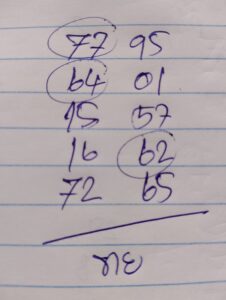 77 95
64 01
15 57
16 62
72 65